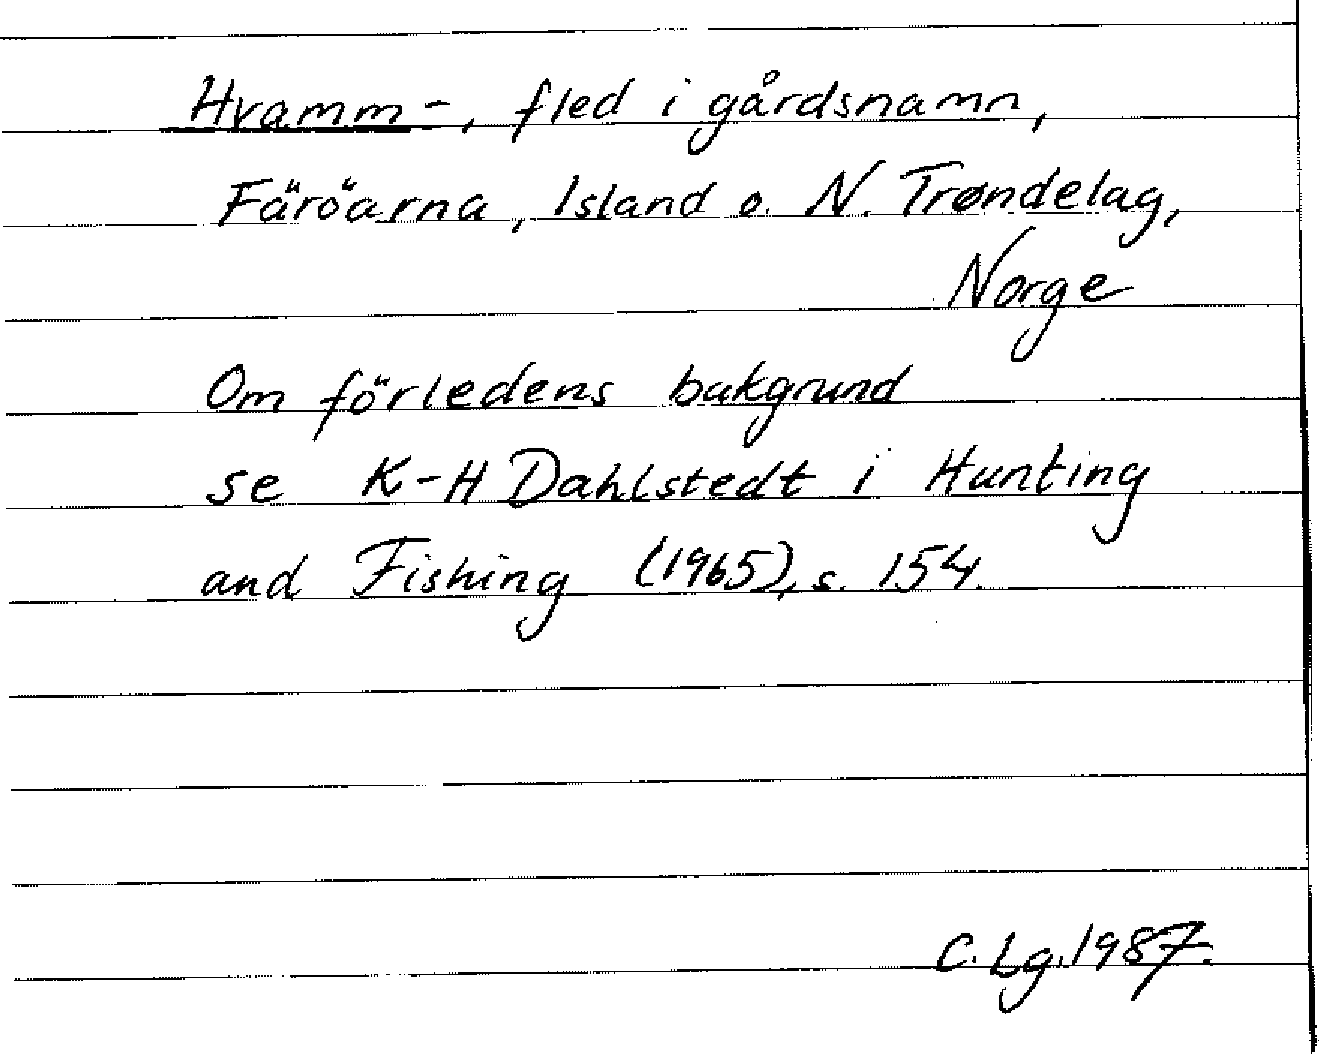 Hvamm-, fled i gårdsnamn,
Färöarna, Island o. N. Trøndelag,
Norge
Om förledens bakgrund
se K-H Dahlstedt i Hunting
and Fishing (1965), s. 154.
C. Lg. 1987.